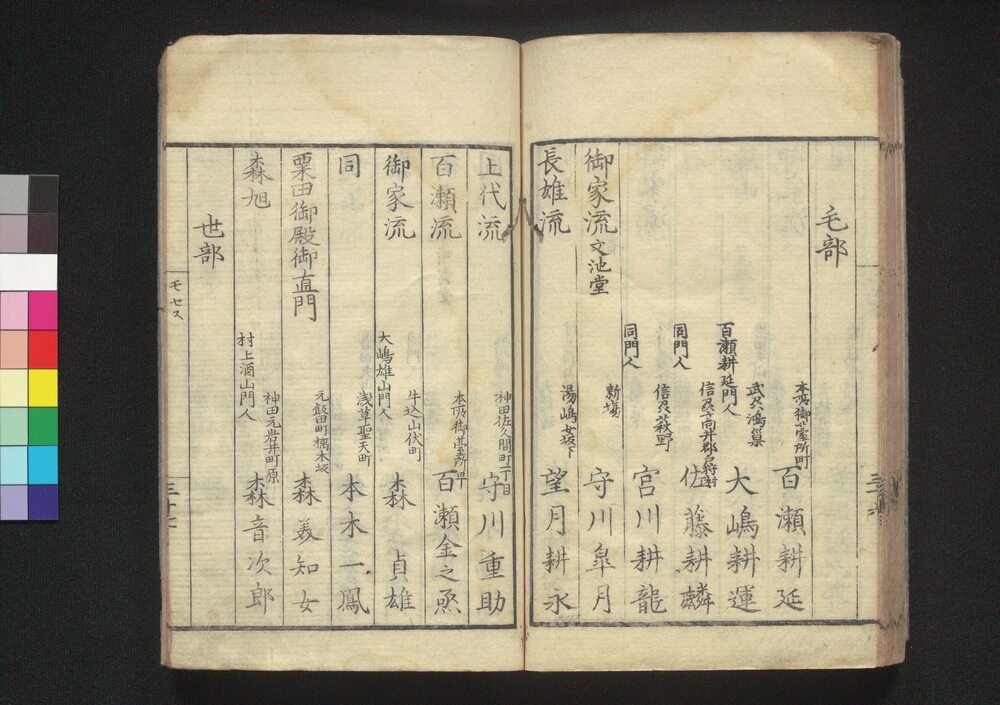 毛部
本所御台所町 百瀬耕延
百瀬耕延門人 武州鴻巣 大嶋耕運
同門人 信州高井郡 佐藤耕麟
同門人 信州萩野 宮川耕龍
御家流 文池堂 新場 守川皐月
長雄流 湯嶋女坂下 望月耕永
上代流 神田佐久間町二丁目 守川重助
百瀬流 本所御台所町 百瀬金之
御家流 牛込山伏町 森貞雄
同 大嶋雄山門人 浅草聖天町 本木一鳳
粟田御殿御直門 元飯田町 森美知女
森旭 村上酒山門人 神田元岩井町原 森音次郎
世部
モセス